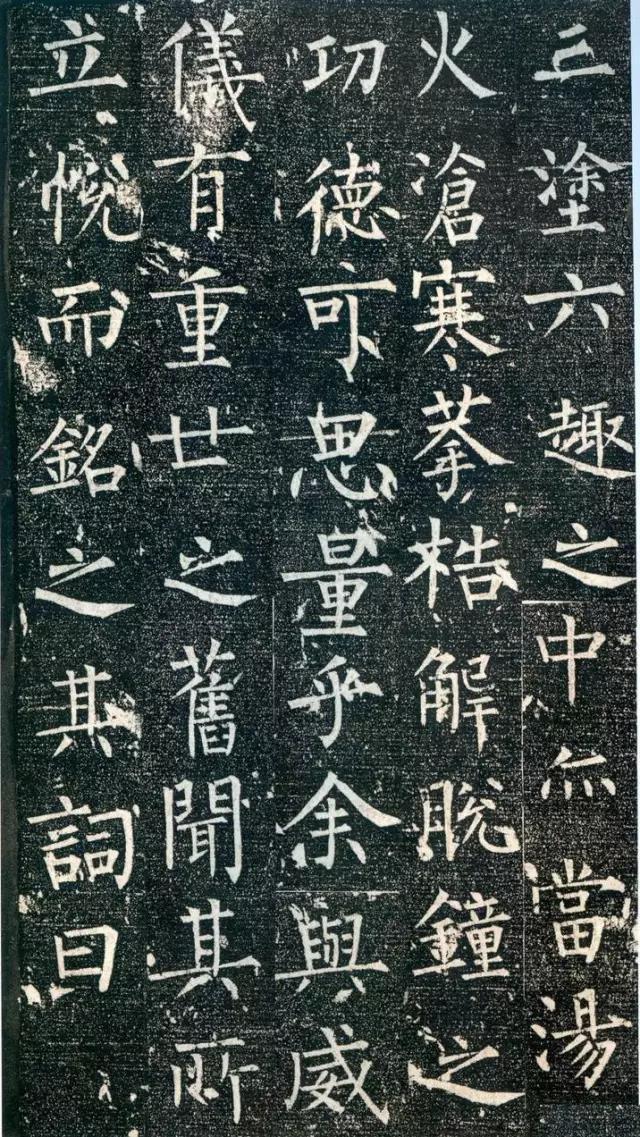 三塗六趣之中亦當湯
火滄寒荼梏解脫鐘之
㓛德可思量乎余與威
儀有重世之舊聞其所
立慨而銘之其詞曰